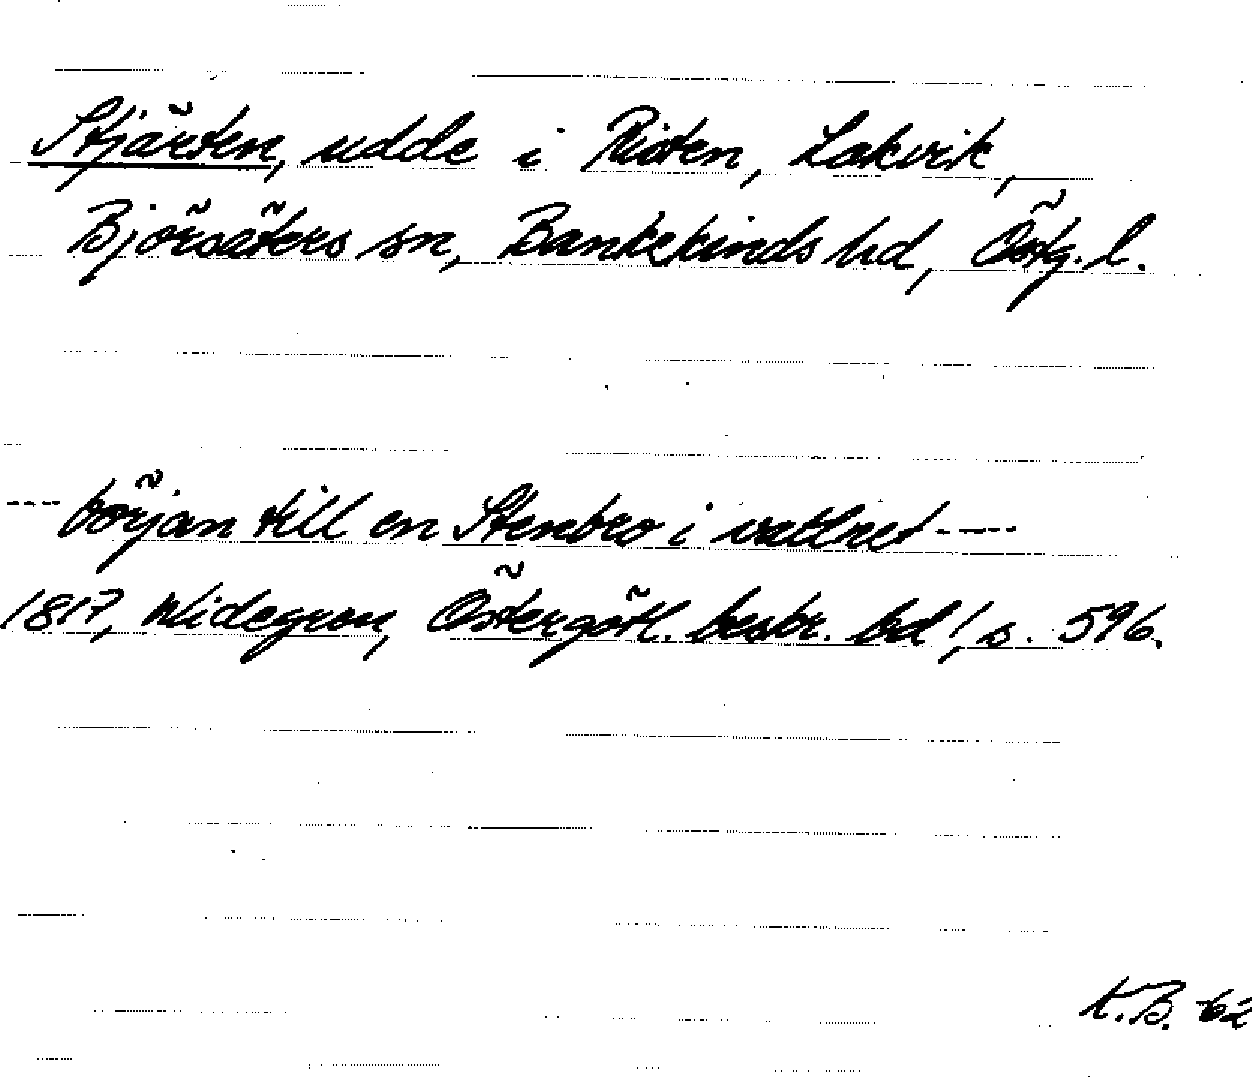 Stjärten, udde i Risten, Lakvik,
Björsäters sn, Bankekinds hd, Östg. l.
--- början till en Stenbro i vattnet ----
1817, Widegren, Östergötl. beskr. bd 1, s. 596.
K.B. 62